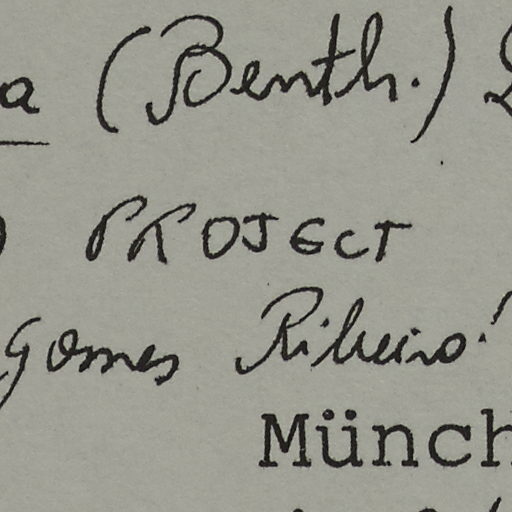 a (Benth.)
PROJECT
Gomes Ribeiro!
Münch